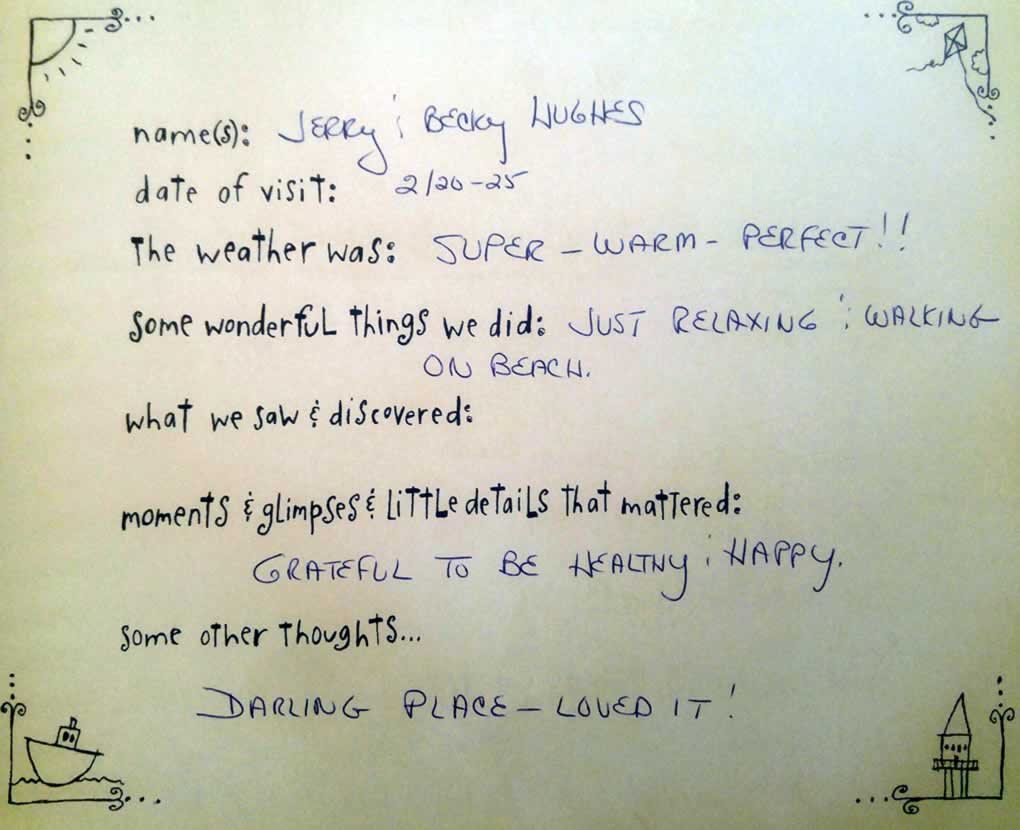 name(s): JERRY & BECKY HUGHES
date of visit: 2/20-25
The weather was: SUPER - WARM - PERFECT!!
some wonderful things we did: JUST RELAXING & WALKING
ON BEACH.
what we saw & discovered:
moments & glimpses & little details that mattered:
GRATEFUL TO BE HEALTHY & HAPPY.
some other thoughts...
DARLING PLACE - LOVED IT!